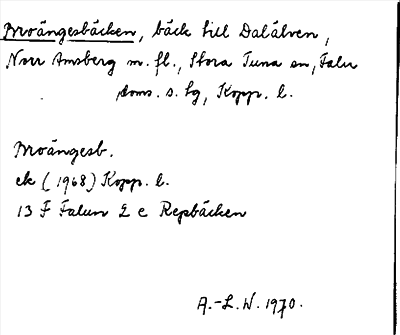 Moängesbäcken, bäck till Dalälven,
Norr Amsberg m. fl., Stora Tuna sn, Falu
doms. s. lg, Kopp. l.
Moängesb.
ek (1968) Kopp. l.
13 F Falun 2 c Repbäcken
A.-L. W. 1970.